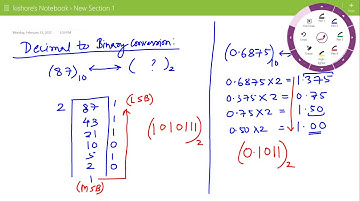 kishores Notebook › New Section 1
Monday, February 13, 2017
Decimal to Binary Conversion:
(87)10 ⟷ ( ? )2
2 87 1 (LSB)
43 1
21 1
10 0
5 1
2 0
1
(MSB)
(1010111)2
(0.6875)10 ⟷
0.6875 X 2 = 1.375
0.375 X 2 = 0.75
0.75 X 2 = 1.50
0.50 X 2 = 1.00
(0.1011)2